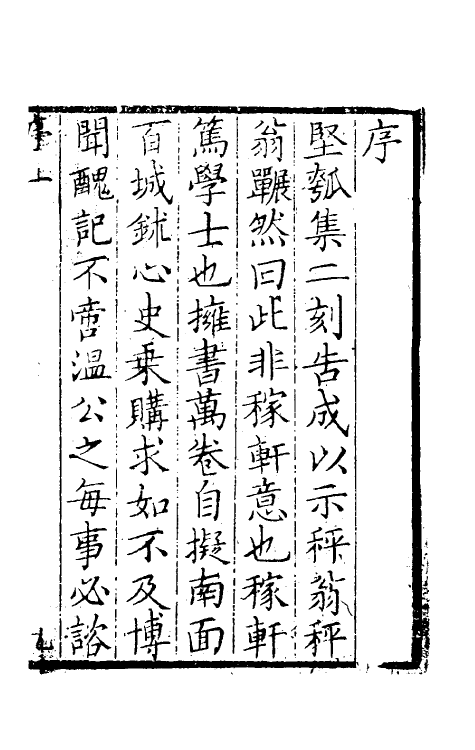 序
堅瓠集二刻告成以示秤翁秤
翁囅然曰此非稼軒意也稼軒
篤學士也擁書萬卷自擬南面
百城鉥心史乗購求如不及博
聞醜記不啻溫公之每事必諮
序上